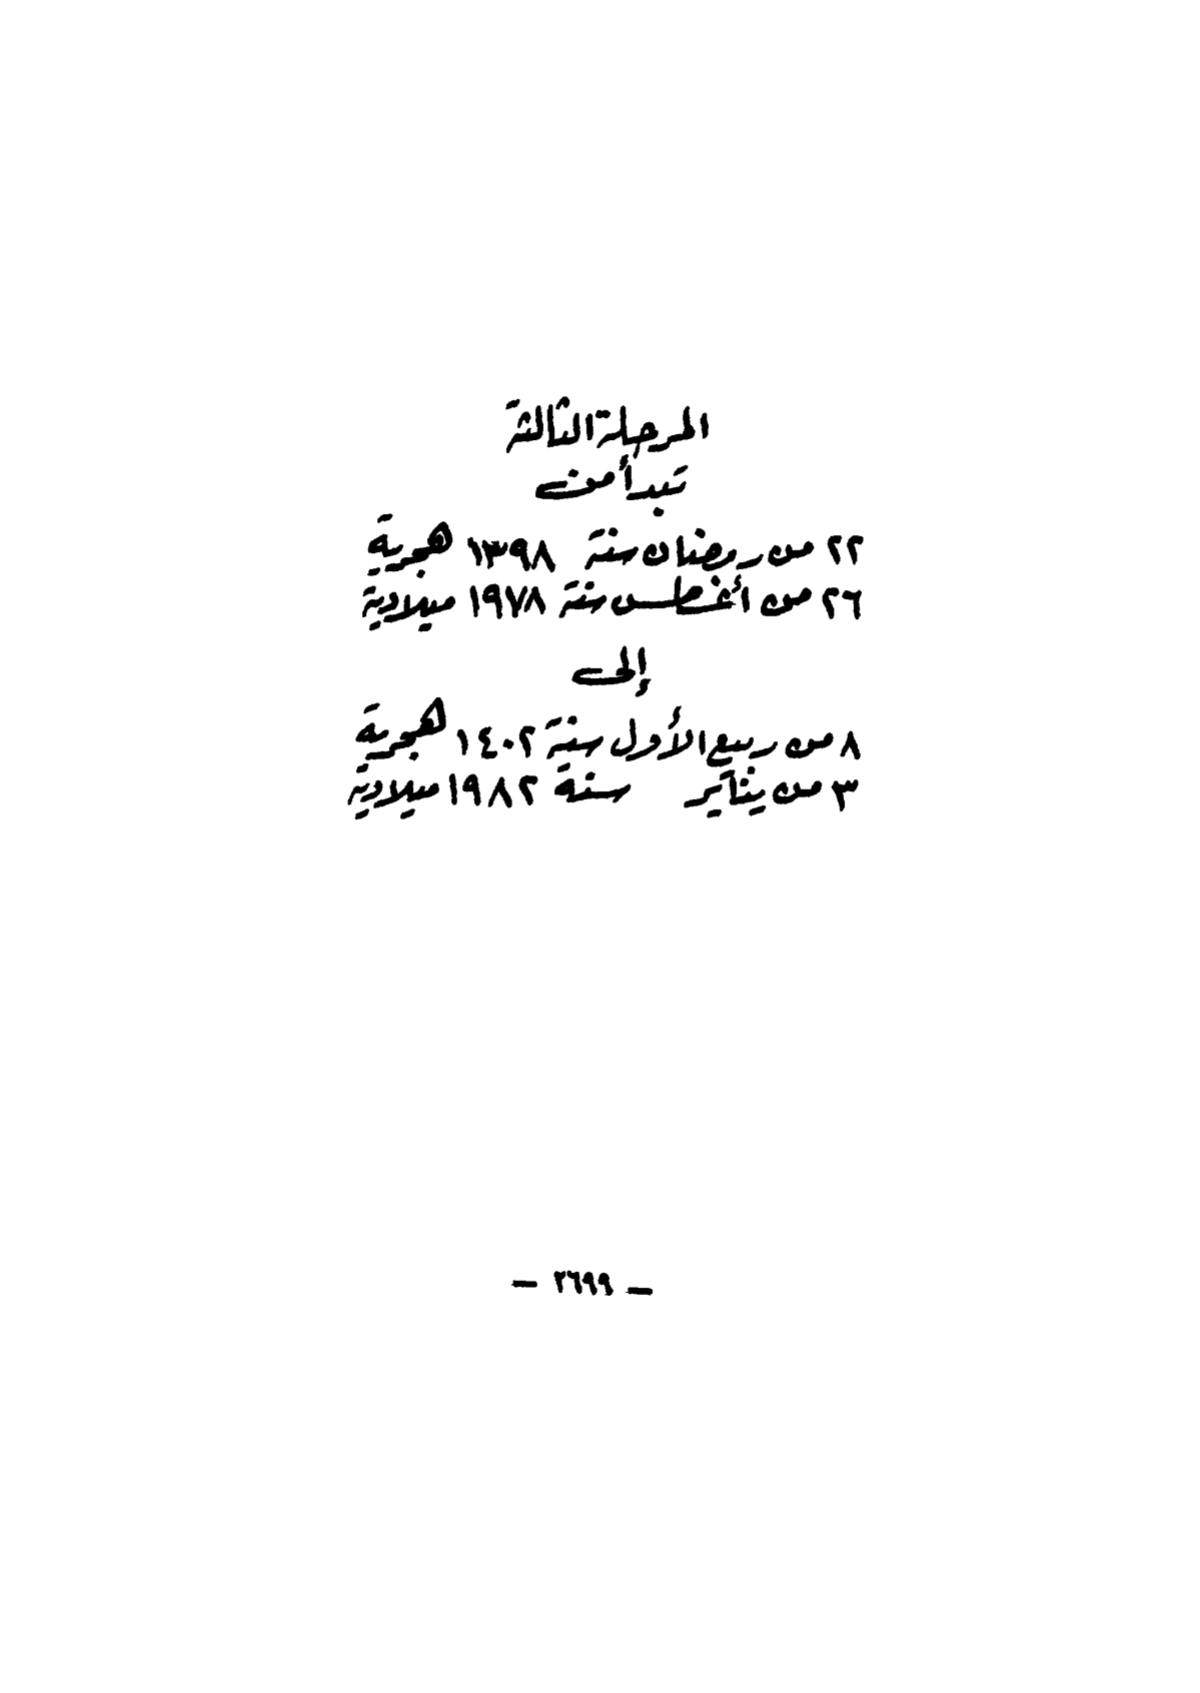 المرحلة الثالثة
تبدأ من
٢٢ من رمضان سنة ١٣٩٨ هجرية
٢٦ من أغسطس سنة ١٩٧٨ ميلادية
إلى
٨ من ربيع الأول سنة ١٤٠٢ هجرية
٣ من يناير سنة ١٩٨٢ ميلادية
— ٢٦٩٩ —